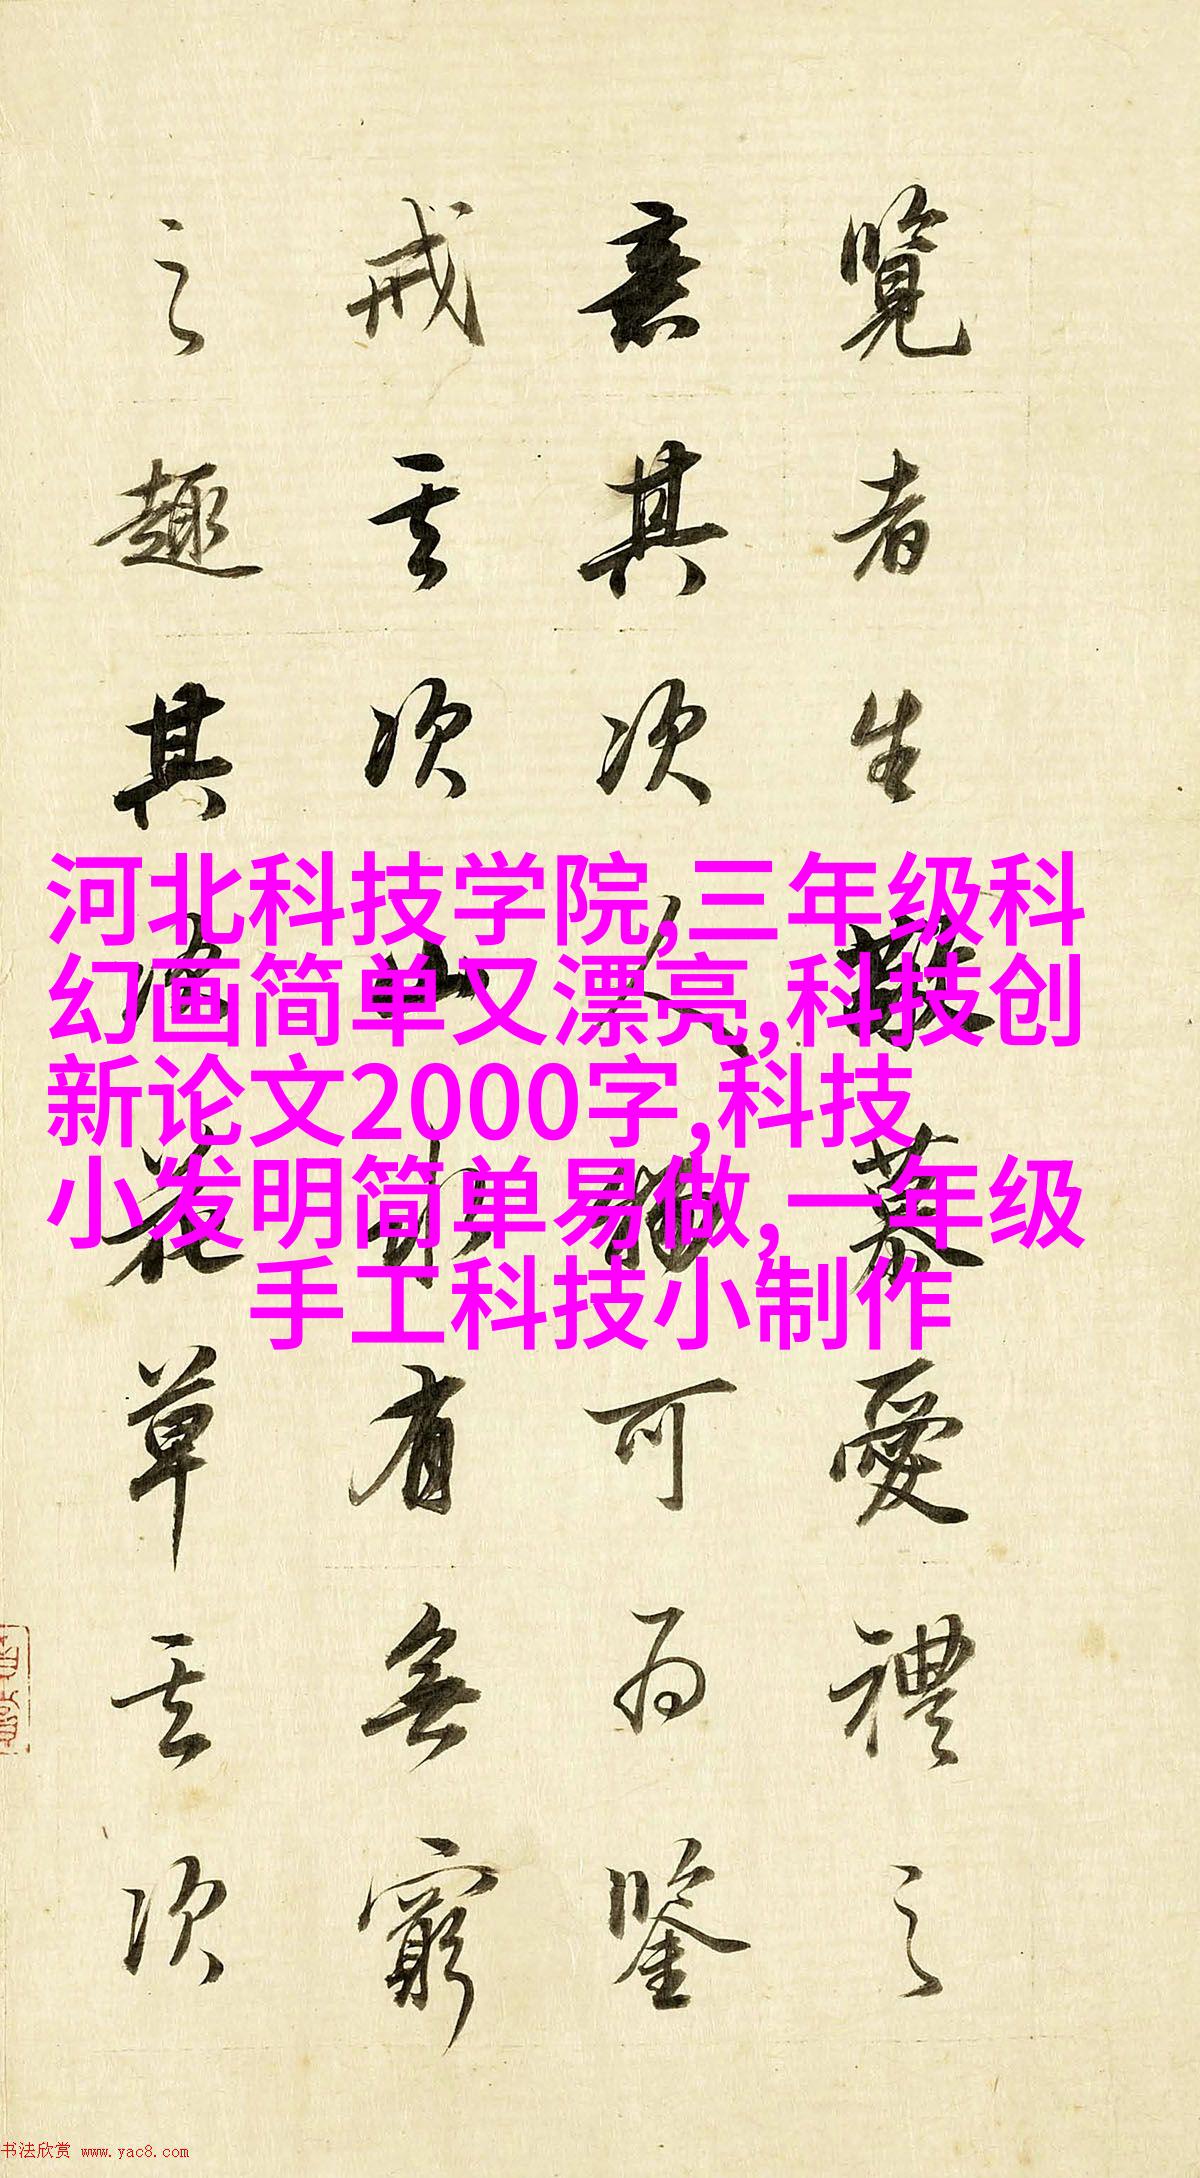 覽者生敬慕愛禮之
意其次人物可為鑒
戒其次山水有無窮
之趣其次花草其次
河北科技学院,三年级科
幻画简单又漂亮,科技创
新论文2000字,科技
小发明简单易做,一年级
手工科技小制作
书法欣赏 www.yac8.com